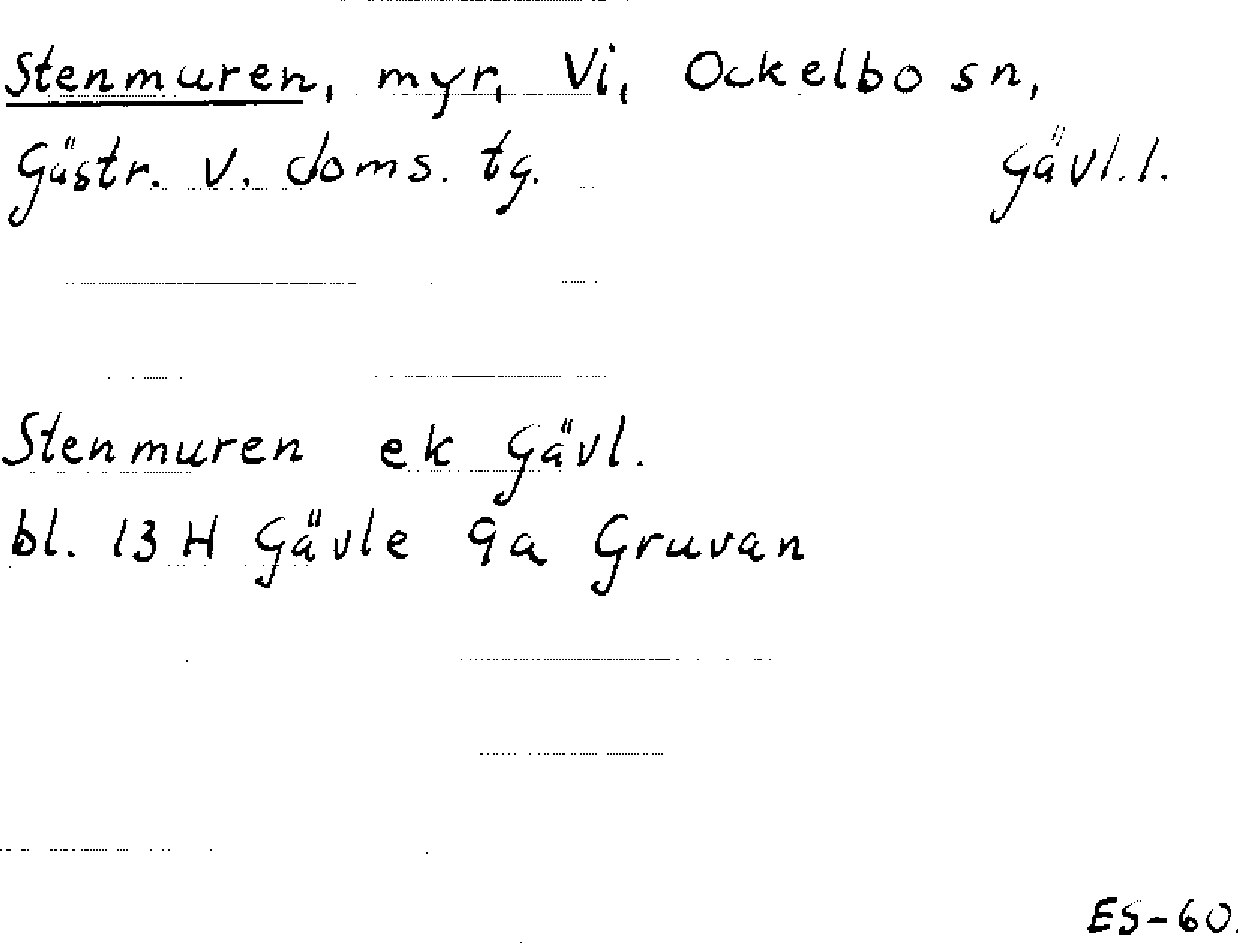 Stenmuren, myr, Vi, Ockelbo sn,
Gästr. V. doms. tg. Gävl. l.
Stenmuren ek Gävl.
bl. 13 H Gävle 9a Gruvan
ES-60.